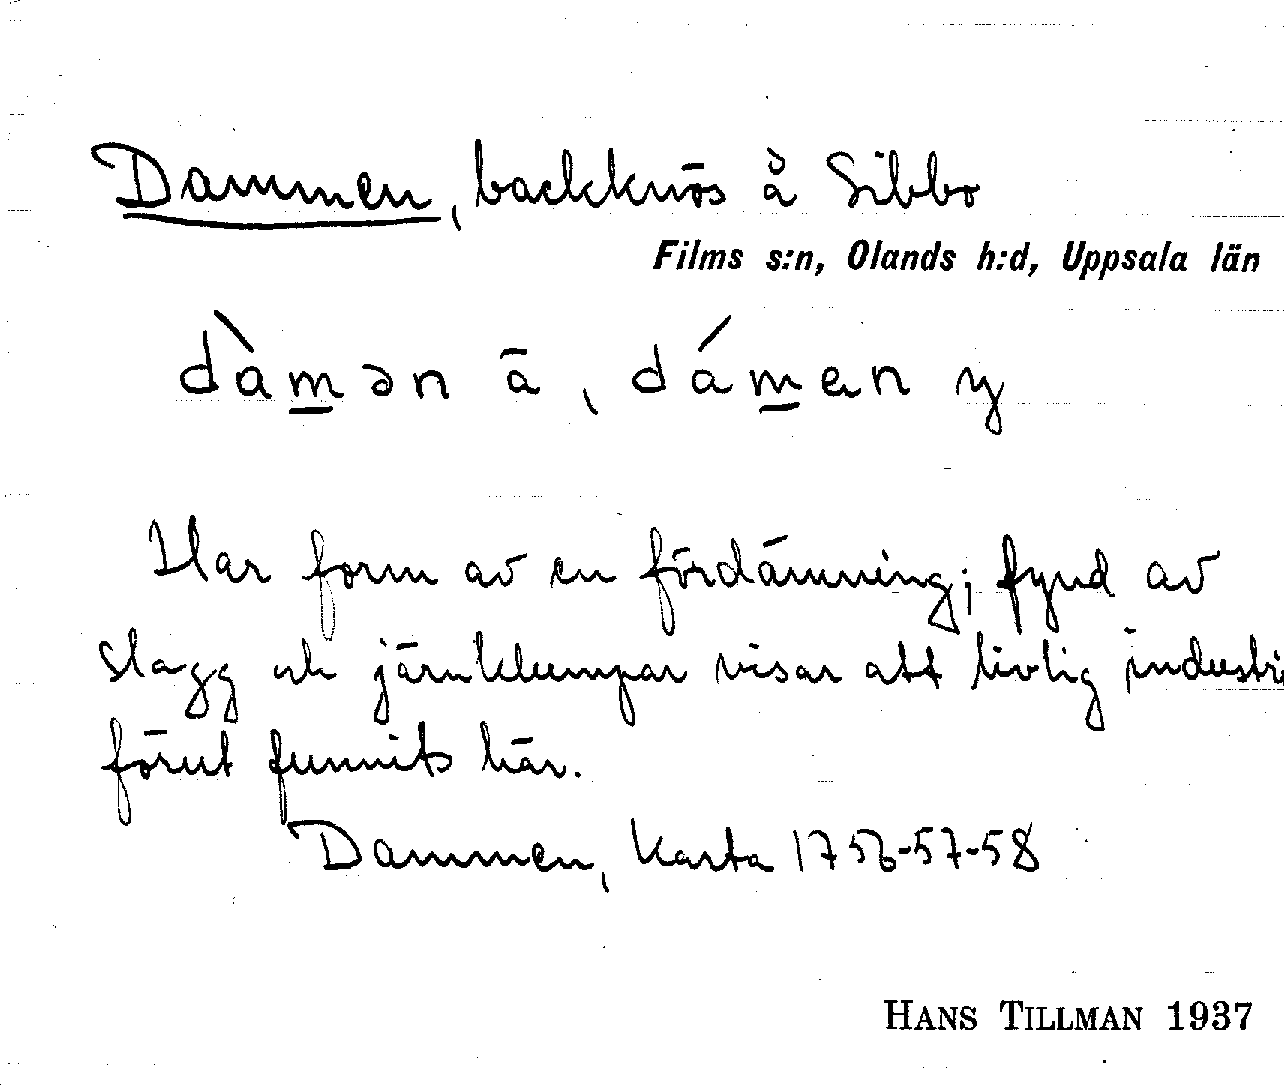 Dammen, backknös å Sibbo
Films s:n, Olands h:d, Uppsala län
dàmən ä, dámen y
Har form av en fördämning; fynd av
slagg och järnklumpar visar att livlig industri
förut funnits här.
Dammen, Karta 1756-57-58
HANS TILLMAN 1937